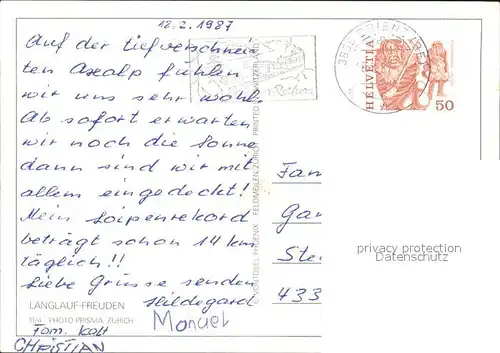 12.2.1987
Auf der tiefverschnei
ten Axalp fühlen
wir uns sehr wohl.
Ab sofort erwarten
wir noch die Sonne
dann sind wir mit
allem eingedeckt!
Mein Loipenrekord
beträgt schon 14 km
täglich!!
Liebe Grüsse senden
Hildegard
Manuel
Fam. Kalt
CHRISTIAN
LANGLAUF-FREUDEN
PHOTO PRISMA, ZÜRICH
PHOENIX FELDMEILEN/ZÜRICH PRINTED SWITZERLAND
Rothorn
3855 BRIENZ (BE)
HELVETIA
50
Fam
Gar
Ste
433
privacy protection
Datenschutz